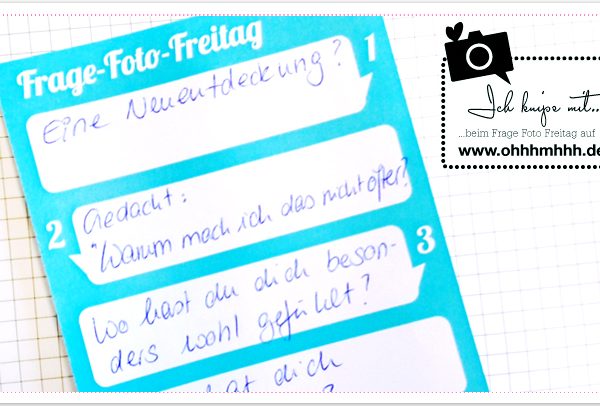 Frage-Foto-Freitag
1
Eine Neuentdeckung?
2
Gedacht:
"Warum mach ich das nicht öfter?
3
Wo hast du dich beson-
ders wohl gefühlt?
hat dich
?
Ich knipse mit...
...beim Frage Foto Freitag auf
www.ohhhmhhh.de